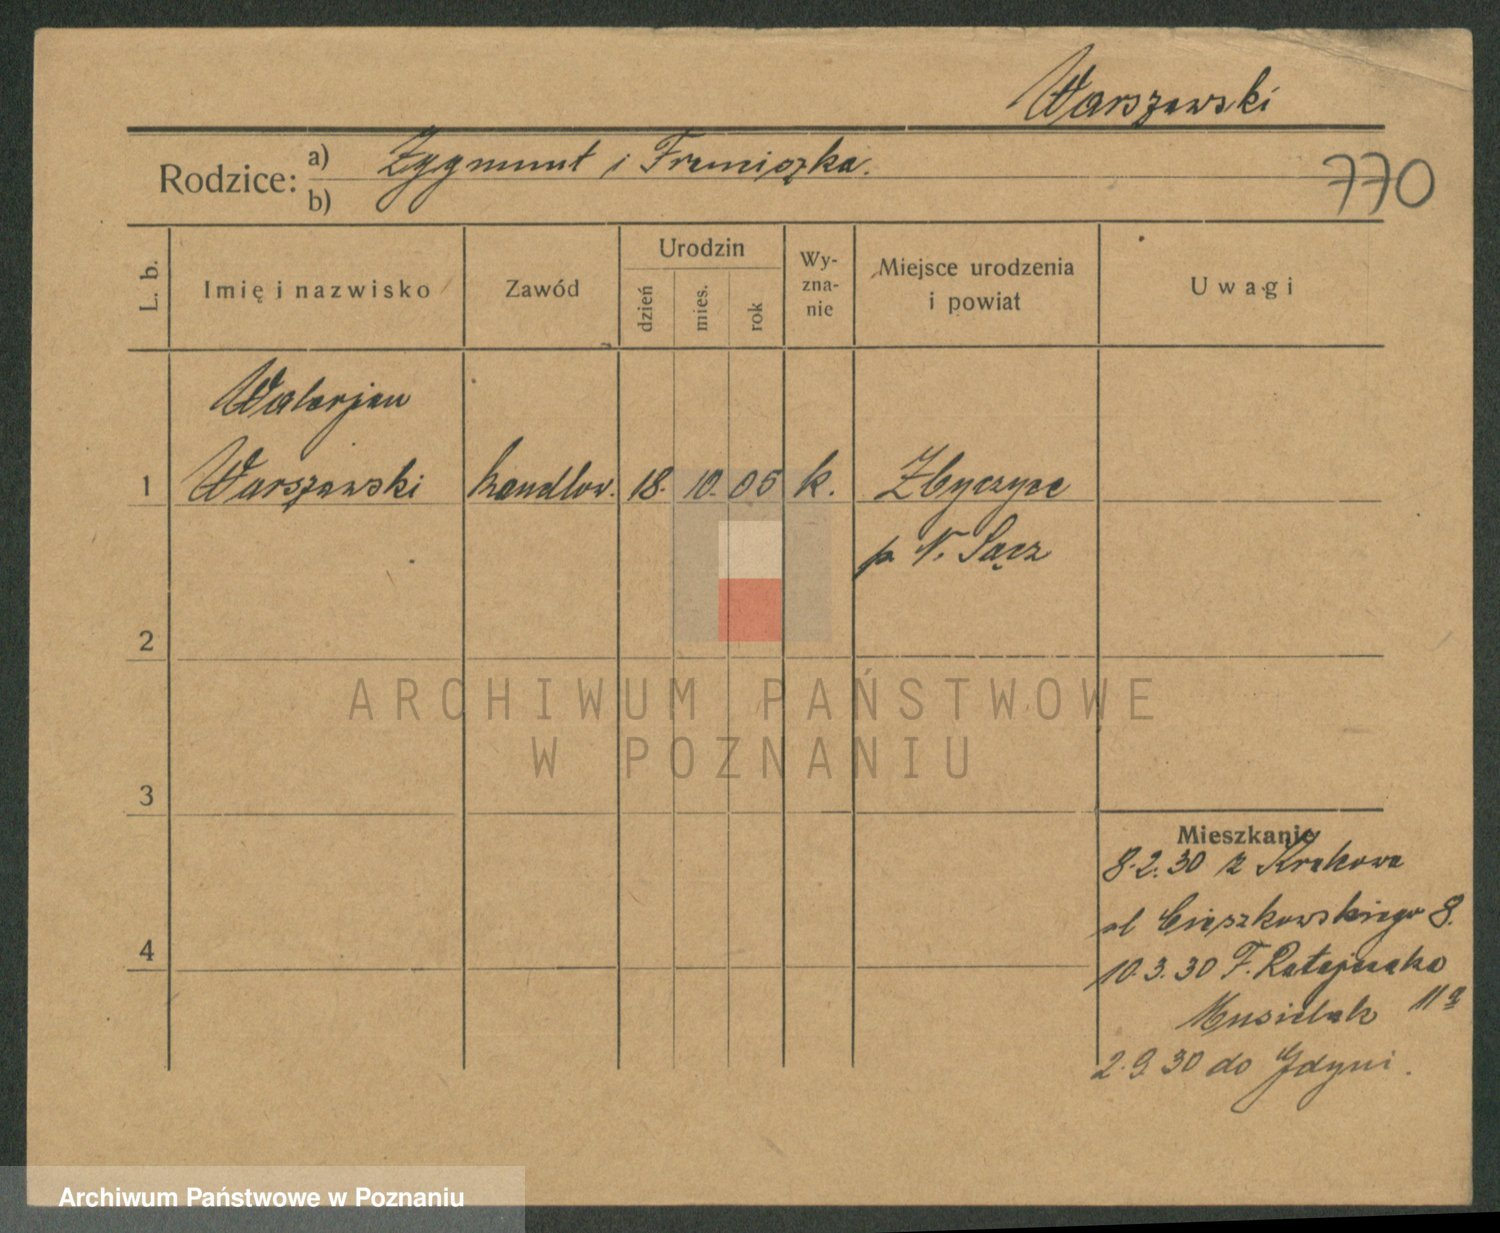 Warszawski
Rodzice: a) Zygmunt i Franciszka.
b)
770
L. b.
Imię i nazwisko
Zawód
Urodzin
dzień
mies.
rok
Wy-
zna-
nie
Miejsce urodzenia
i powiat
Uwagi
Walerjan
1 Warszawski handlow. 18. 10. 05 k. Zbyczyce
p N. Sącz
2
ARCHIWUM PAŃSTWOWE
W POZNANIU
3
4
Mieszkanie
8.2.30 z Krakowa
ul Cieszkowskiego 8.
10.3.30 F. Ratajczaka
11a
Musielak
2.9.30 do Gdyni.
Archiwum Państwowe w Poznaniu